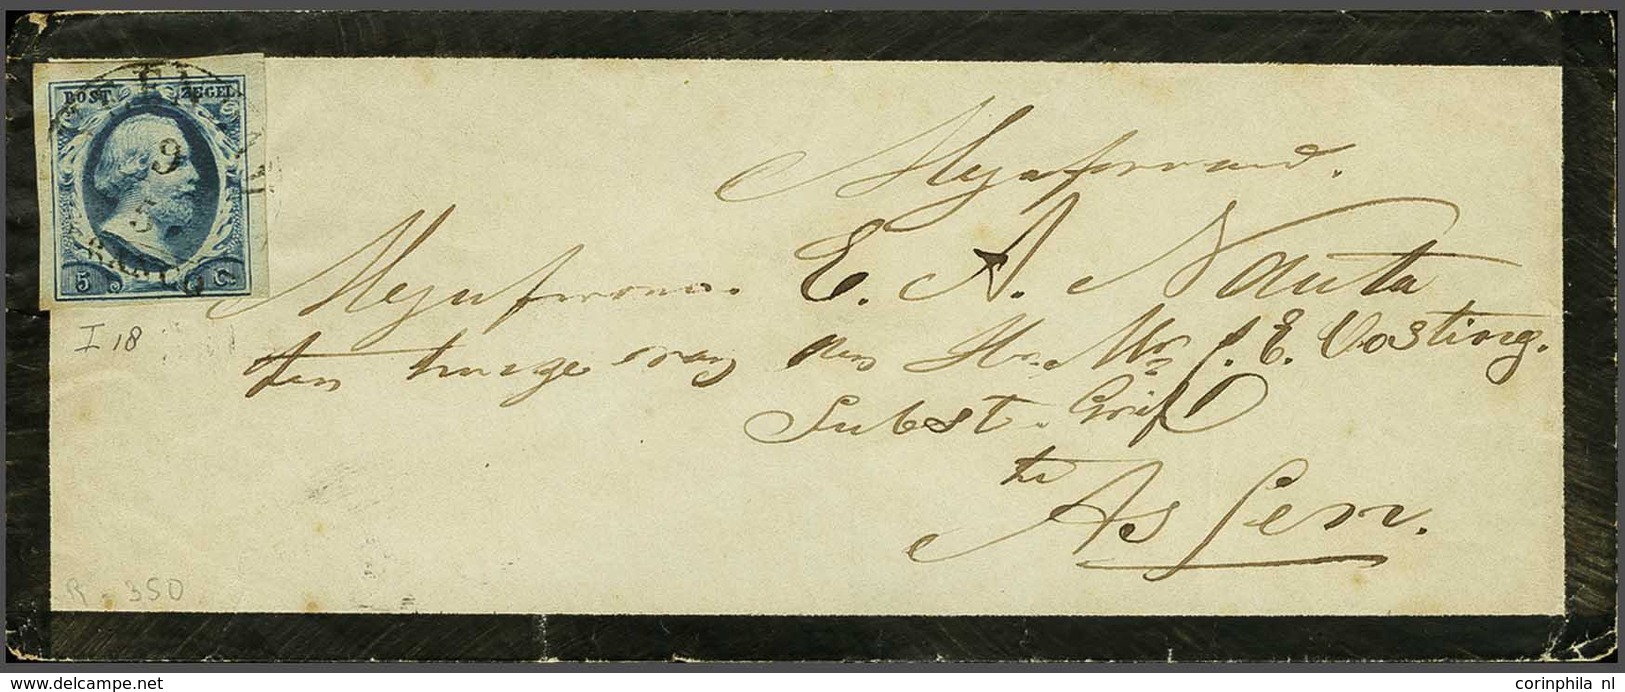 POST ZEGEL
9
5
FRANCO
5 C.
I 18
Mejufvrouw.
Mejufvrouw. E. A. Nauta
ten huize van den Hr. Mr. J. E. Oosting.
Subst. Grif
te
Assen.
R - 350
www.delcampe.net
corinphila nl